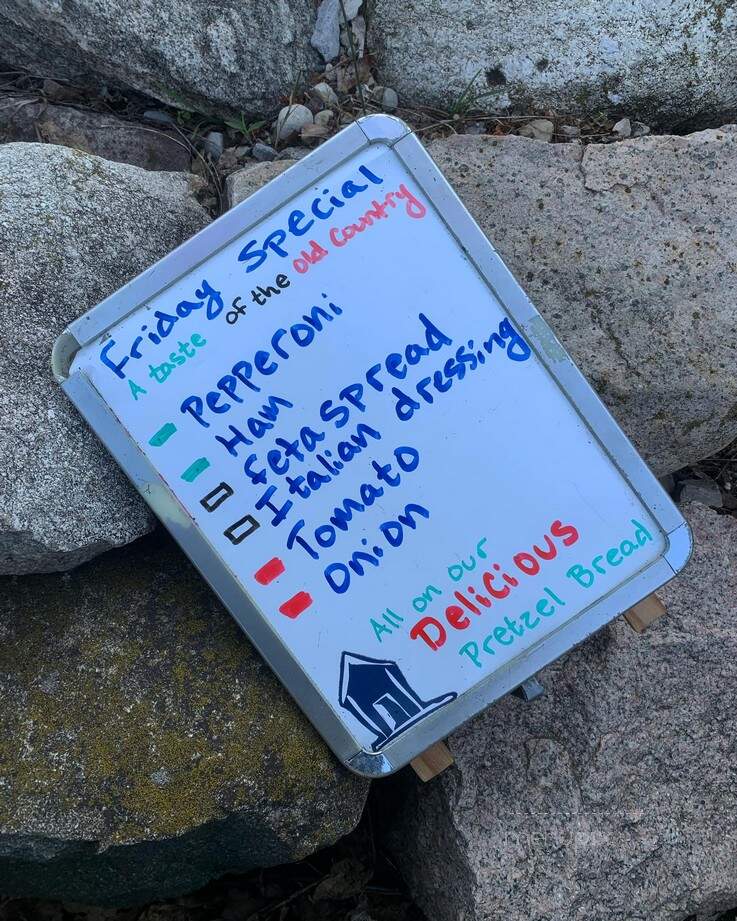 Friday Special
A taste of the Old Country
Pepperoni
Ham
feta spread
Italian dressing
Tomato
Onion
All on our
Delicious
Pretzel Bread